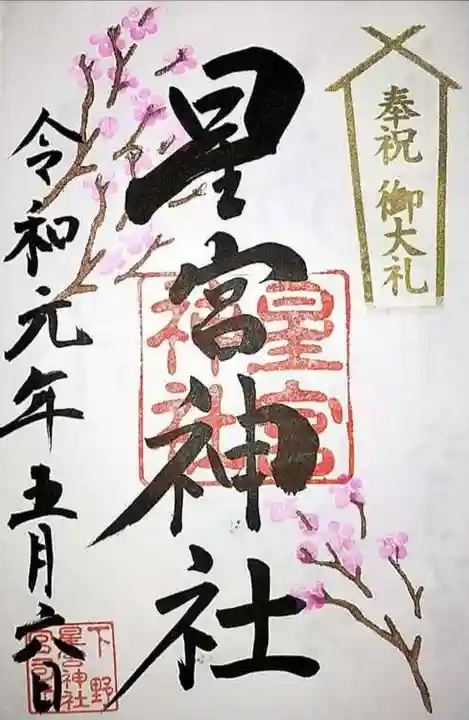 奉祝 御大礼
星宮神社
星宮
神社
令和元年五月六日
下野
星宮神社
宮司印